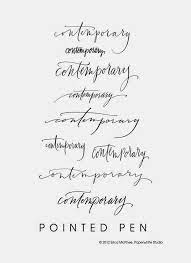 contemporary
contemporary
contemporary
contemporary
contemporary
contemporary contemporary
contemporary
contemporary
POINTED PEN